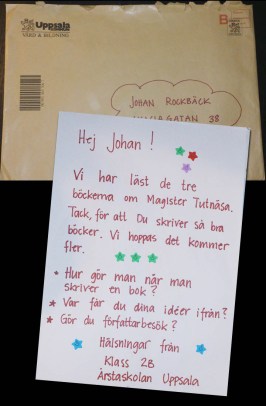 Uppsala
VÅRD & BILDNING
B
JOHAN ROCKBÄCK
GATAN 38
Hej Johan!
Vi har läst de tre
böckerna om Magister Tutnäsa.
Tack, för att Du skriver så bra
böcker. Vi hoppas det kommer
fler.
* Hur gör man när man
skriver en bok?
* Var får du dina idéer ifrån?
* Gör du författarbesök?
Hälsningar från
Klass 2B
Årstaskolan Uppsala